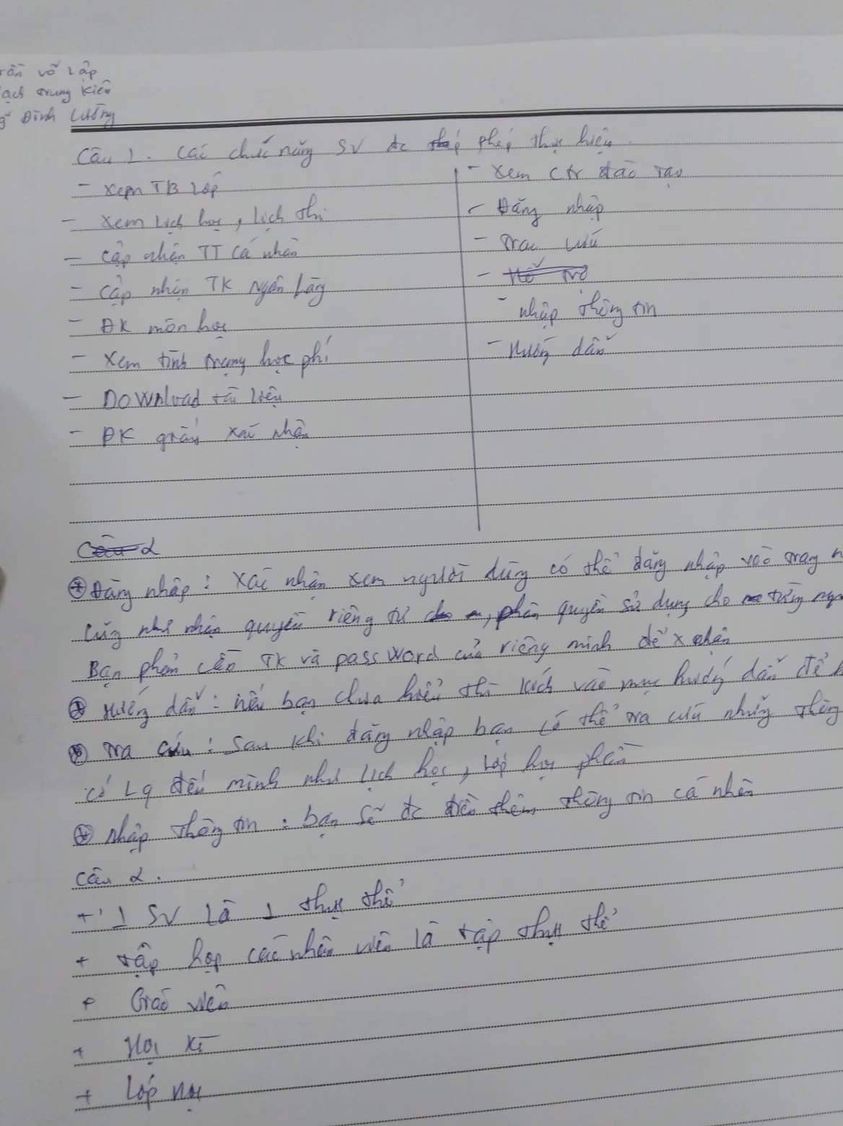 Trần võ Lập
Trung Kiên
Đình Lường
Câu 1. Các chức năng SV đc phép thực hiện.
- Xem TB Lớp
- Xem Lịch học, Lịch thi
- Cập nhận TT Cá nhân
- Cập nhận TK Ngân hàng
- ĐK môn học
- Xem tình trạng học phí
- Download tài liệu
- ĐK giấy xác nhận
- Xem Ctr đào tạo
- Đăng nhập
- Tra cứu
- Hỗ trợ
- nhập thông tin
- Hướng dẫn
Câu 2
* Đăng nhập: Xác nhận xem người dùng có thể đăng nhập vào trang
Cũng như nhận quyền riêng tư, phân quyền sử dụng cho từng
Bạn phải cần TK và password của riêng mình để x nhận
* Hướng dẫn: nếu bạn chưa hiểu thì kích vào mục hướng dẫn để
* Tra cứu: Sau khi đăng nhập bạn có thể tra cứu những thông
có Lq đến mình như lịch học, lớp học phần
* Nhập thông tin: bạn sẽ đc điền thêm thông tin cá nhân
Câu 2.
+ 1 SV là 1 thực thể
+ tập hợp các nhân viên là tập thực thể
+ Giáo viên
+ Học kì
+ Lớp học